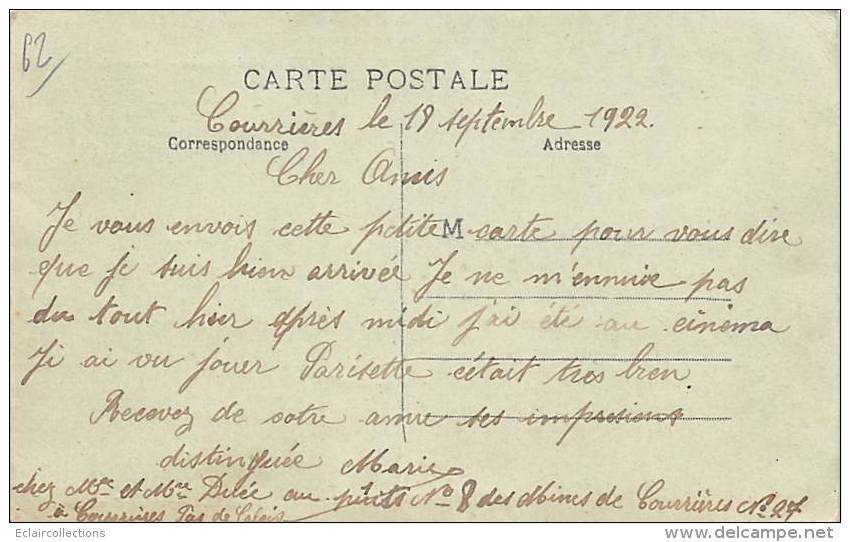 62
CARTE POSTALE
Courrières le 18 septembre 1922.
Correspondance
Adresse
Cher Amis
Je vous envois cette petite M carte pour vous dire
que je suis bien arrivée Je ne m'ennuie pas
du tout hier après midi j'ai été au cinéma
Ji ai vu jouer Parisette c'était très bien
Recevez de votre amie ses impresions
distinguée Marie
chez Mr et Mme Delée au puits No 8 des Mines de Courrières No 27
à Courrières Pas de Calais
Eclaircollections
www.delcampe.net